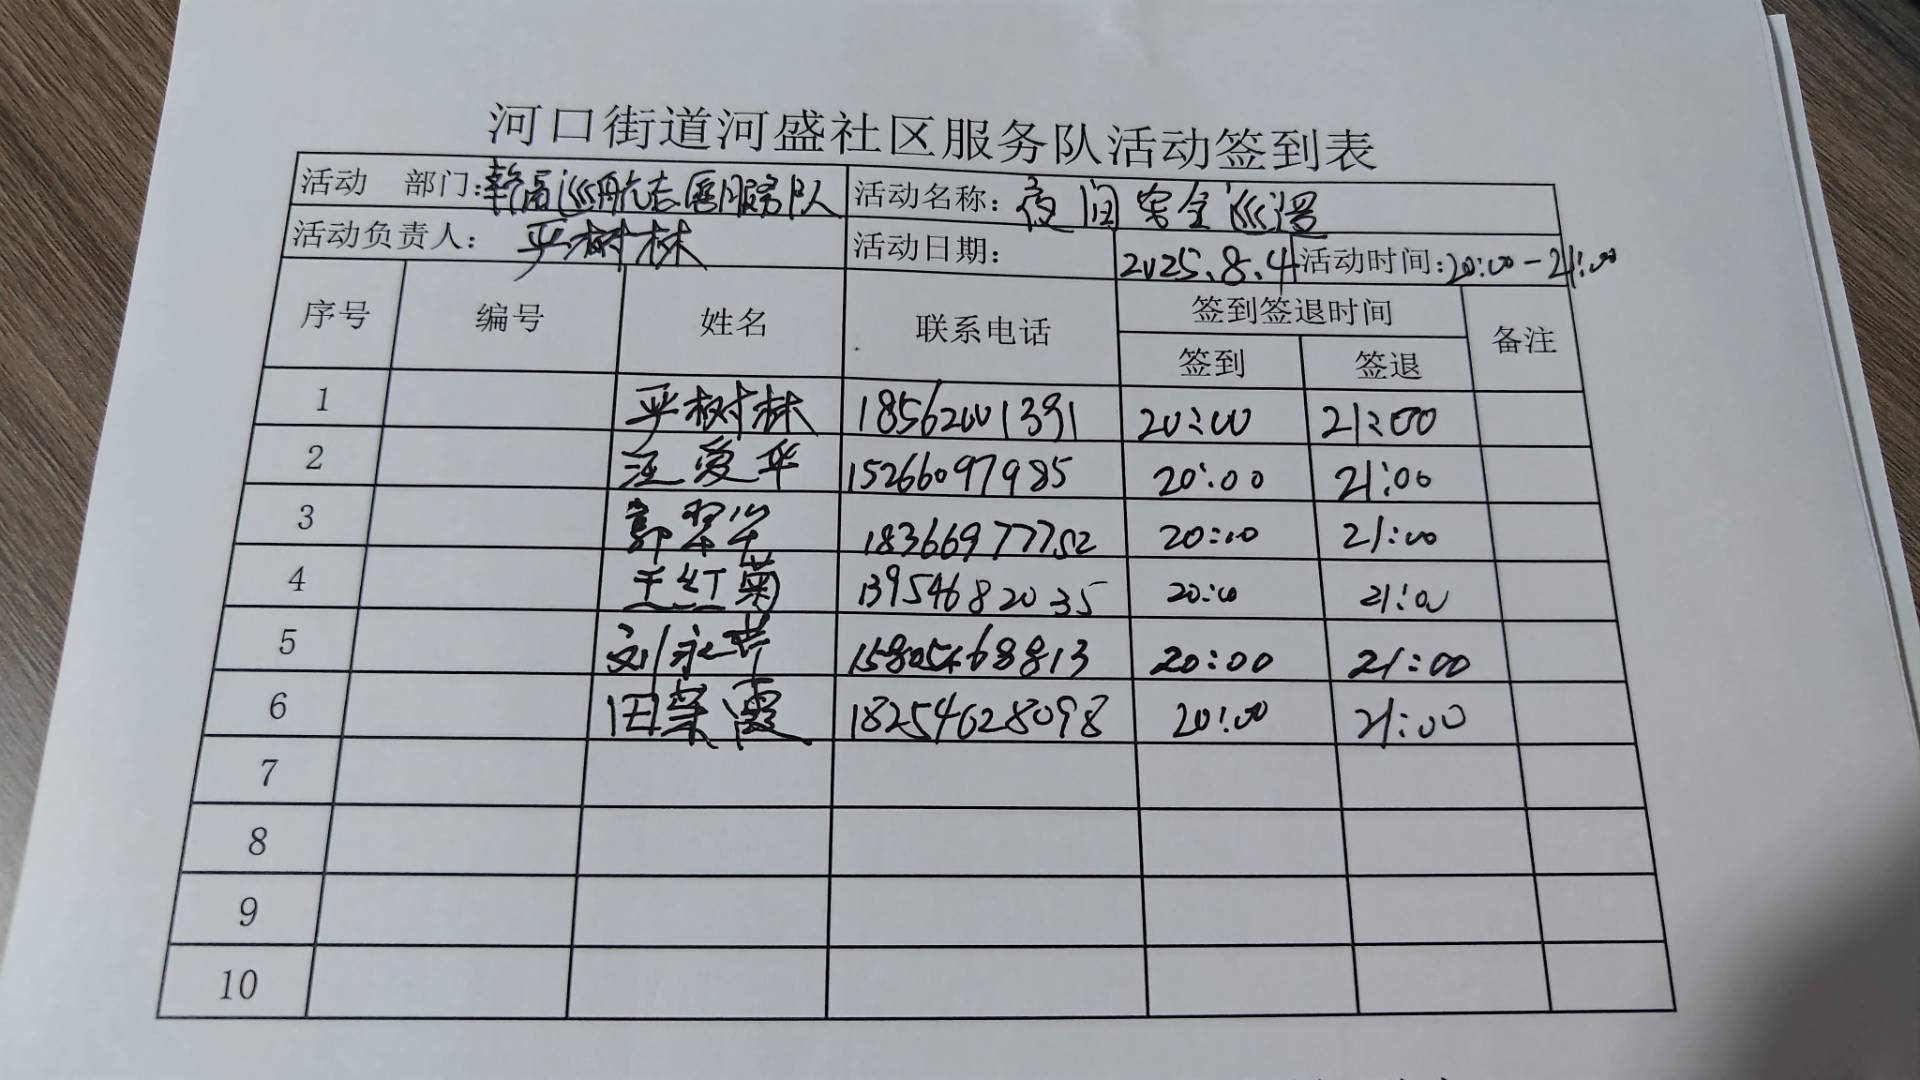 河口街道河盛社区服务队活动签到表
活动 部门: 巡航志愿服务队 活动名称: 夜间安全巡逻
活动负责人: 平树林 活动日期: 2025.8.4 活动时间:20:00-21:00
序号 编号 姓名 联系电话 签到签退时间 备注
签到 签退
1 平树林 18562001391 20:00 21:00
2 汪爱华 15266097985 20:00 21:00
3 郭翠华 18366977752 20:00 21:00
4 王红菊 13954682035 20:00 21:00
5 刘永芹 15805468813 20:00 21:00
6 田荣霞 18254628098 20:00 21:00
7
8
9
10